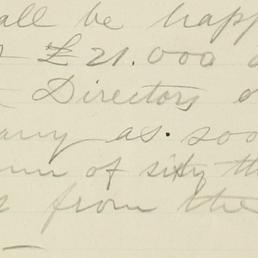 all be happ
£21.000
Directors o
any as soo
um of sixty th
s from the